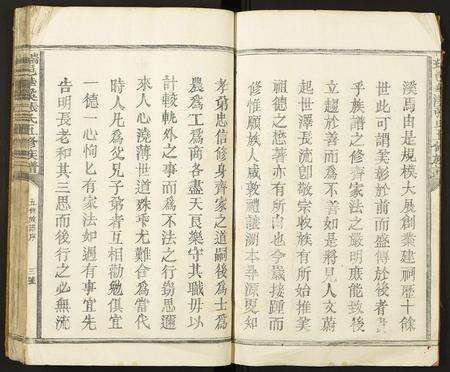 溪馬由是規模大展創業建祠歷十餘
世此可謂美彰於前而盛傳於後者
乎族譜之修齊家法之嚴明庶能致後
立趨於善而為不善如是將見人文蔚
起世澤長流卽敬宗收族有所始推美
祖德之懋著亦有所自也今議接踵而
修惟願族人咸敦禮議溯本尋源更知
孝弟忠信修身齊家之道嗣後為士為
農為工為商各盡天良樂守其職毋以
計較軌外之事而為不法之行易思邇
來人心澆薄世道殊乎尤難會為當代
時人凡為父兄子弟者互相勸勉俱宜
一德一心恂匕有家法如遇有事宜先
告明長老和其三思而後行之必無流
張氏五修族譜
五修族譜序
三號